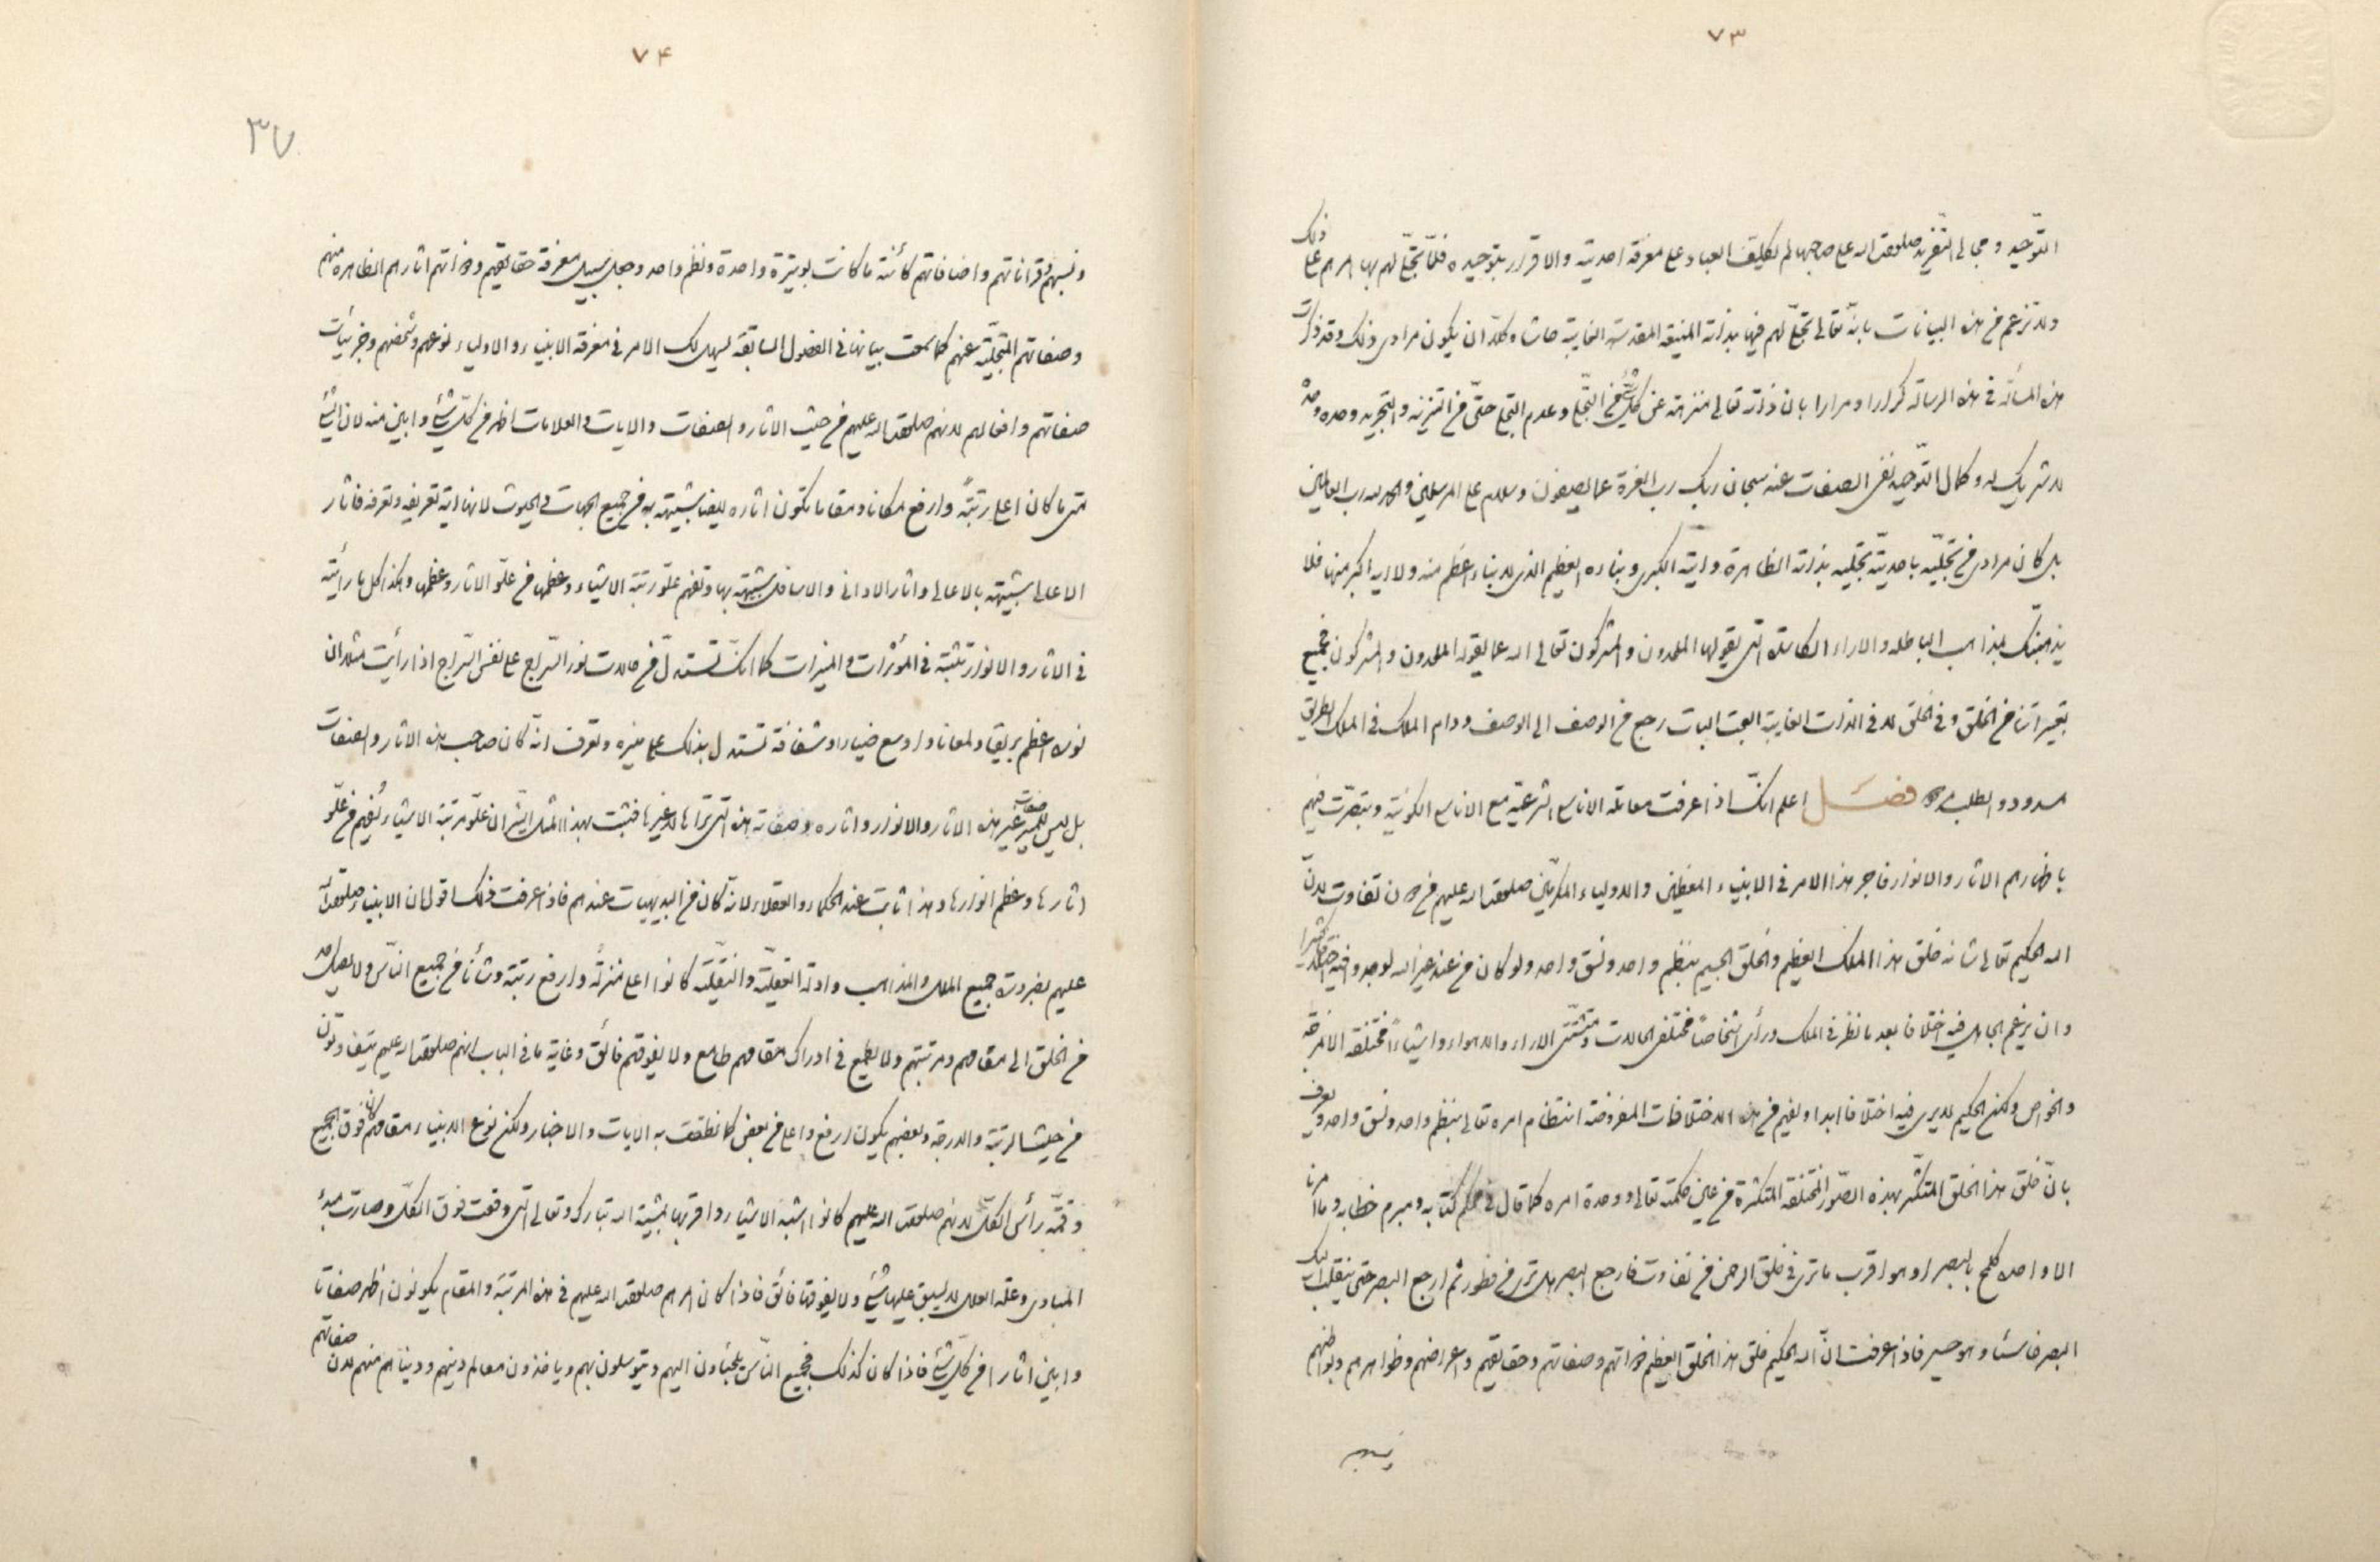 ٧٣
التوحيد ومجالى التفريد صلوات الله على صاحبها لم يكلف العباد على معرفة احديته والاقرار بتوحيده فلما تجلى لهم بها امرهم على ذلك
ولا تزعم من هذه البيانات بانه تعالى تجلى لهم فيها بذاته المنيعة المقدسة الغايبة حاشا وكلا ان يكون مرادى ذلك وقد ذكرت
هذه المسألة فى هذه الرسالة كرارا ومرارا بان ذاته تعالى منزهة عن كل شئ من التجلى وعدم التجلى حتى من التنزيه والتجريد وحده وحده
لا شريك له وكمال التوحيد نفى الصفات عنه سبحان ربك رب العزة عما يصفون وسلام على المرسلين والحمد لله رب العالمين
بل كان مرادى من تجليه باحديته تجليه بذاته الظاهرة وايته الكبرى ونبائه العظيم الذى لا نباء اعظم منه ولا اية اكبر منها فلا
يذهبنك المذاهب الباطلة والاراء الكاسدة التى يقولها الملحدون والمشركون تعالى الله عما يقوله الملحدون والمشركون فجميع
تعبيراتنا من الخلق وفى الخلق لا فى الذات الغايبة البحت البات رجع من الوصف الى الوصف ودام الملك فى الملك الطريق
مسدود والطلب مردود فصل اعلم انك اذا عرفت معاملة الاناسى الشرعية مع الاناسى الكونية وتبصرت فيهم
باظهارهم الاثار والانوار فاجر هذا الامر فى الانبياء المعظمين والاولياء المكرمين صلوات الله عليهم من دون تفاوت لان
الله الحكيم تعالى شانه خلق هذا الملك العظيم والخلق الجسيم بنظم واحد ونسق واحد ولو كان من عند غير الله لوجدوا فيه اختلافا كثيرا
وان يزعم الجاهل فيه اختلافا بعد ما نظر فى الملك وراى اشخاصا مختلفى الحالات ومتشتتى الاراء والاهواء واشياء مختلفة الامزجة
والخواص ولكن الحكيم لا يرى فيه اختلافا ابدا ويفهم من هذه الاختلافات المفروضة انتظام امره تعالى بنظم واحد ونسق واحد ويعرف
بان خلق هذا الخلق المتكثر بهذه الصور المختلفة المتكثرة من عين حكمته تعالى ووحدة امره كما قال فى محكم كتابه ومبرم خطابه وما امرنا
الا واحدة كلمح بالبصر او هو اقرب ما ترى فى خلق الرحمن من تفاوت فارجع البصر هل ترى من فطور ثم ارجع البصر حتى ينقلب اليك
البصر خاسئا وهو حسير فاذا عرفت ان الله الحكيم خلق هذا الخلق العظيم ذواتهم وصفاتهم وحقايقهم واعراضهم وظواهرهم وبواطنهم
٧۴
٣٧
ونسبهم وقراناتهم واضافاتهم كائنة ما كانت بوتيرة واحدة ونظم واحد وجعل سبيل معرفة حقايقهم وذواتهم اثارهم الظاهرة منهم
وصفاتهم المتجلية عنهم كما سمعت بيانها فى الفصول السابقة ليسهل لك الامر فى معرفة الانبياء والاولياء نوعهم وشخصهم وجزئيات
صفاتهم وافعالهم لانهم صلوات الله عليهم من حيث الاثار والصفات والايات والعلامات اظهر من كل شئ وابين منه لان الشئ
متى ما كان اعلى رتبة وارفع مكانا ومقاما تكون اثاره ايضا شبيهة به من جميع الجهات والحيوث لانها اية تعريفه وتعرفه فاثار
الاعالى شبيهة بالاعالى واثار الادانى والاسافل شبيهة بها وتفهم علو رتبة الاشياء وعظمها من علو الاثار وعظمها وهكذا كل ما رايته
فى الاثار والانوار تثبته فى المؤثرات والمنيرات كما انك تستدل من حالات نور السراج على نفس السراج اذا رأيت مثلا ان
نوره اعظم بريقا ولمعانا واوسع ضياء وشفافة تستدل بذلك على منيره وتعرف انه كان صاحب هذه الاثار والصفات
بل ليس للمنير صفات غير هذه الاثار والانوار واثاره وصفاته هذه التى تراها لا غيرها فثبت بهذا المثل ان علو مرتبة الاشياء يفهم من علو
اثارها وعظم انوارها وهذا ثابت عند الحكماء والعقلاء لانه كان من البديهيات عندهم فاذا عرفت ذلك اقول ان الانبياء صلوات الله
عليهم بضرورة جميع الملل والمذاهب وادلة العقلية والنقلية كانوا اعلى منزلة وارفع رتبة وشأنا من جميع الناس ولا يصل احد
من الخلق الى مقامهم ومرتبتهم ولا يطمع فى ادراك مقامهم طامع ولا يفوقهم فائق وغاية ما فى الباب انهم صلوات الله عليهم يتفاوتون
من حيث الرتبة والدرجة وبعضهم يكون ارفع واعلى من بعض كما نطقت به الايات والاخبار ولكن نوع الانبياء مقامهم كان فوق الجميع
وقمة رأس الكل لانهم صلوات الله عليهم كانوا اشبه الاشياء واقربها بمشية الله تبارك وتعالى التى وقعت فوق الكل وصارت مبدء
المبادى وعلة العلل لا يسبق عليها شئ ولا يفوقها فائق فاذا كان امرهم صلوات الله عليهم فى هذه المرتبة والمقام يكونون اظهر صفاتا
وابين اثارا من كل شئ فاذا كان كذلك فجميع الناس يلجئاون اليهم ويتوسلون بهم وياخذون معالم دينهم ودنياهم منهم لان صفاتهم